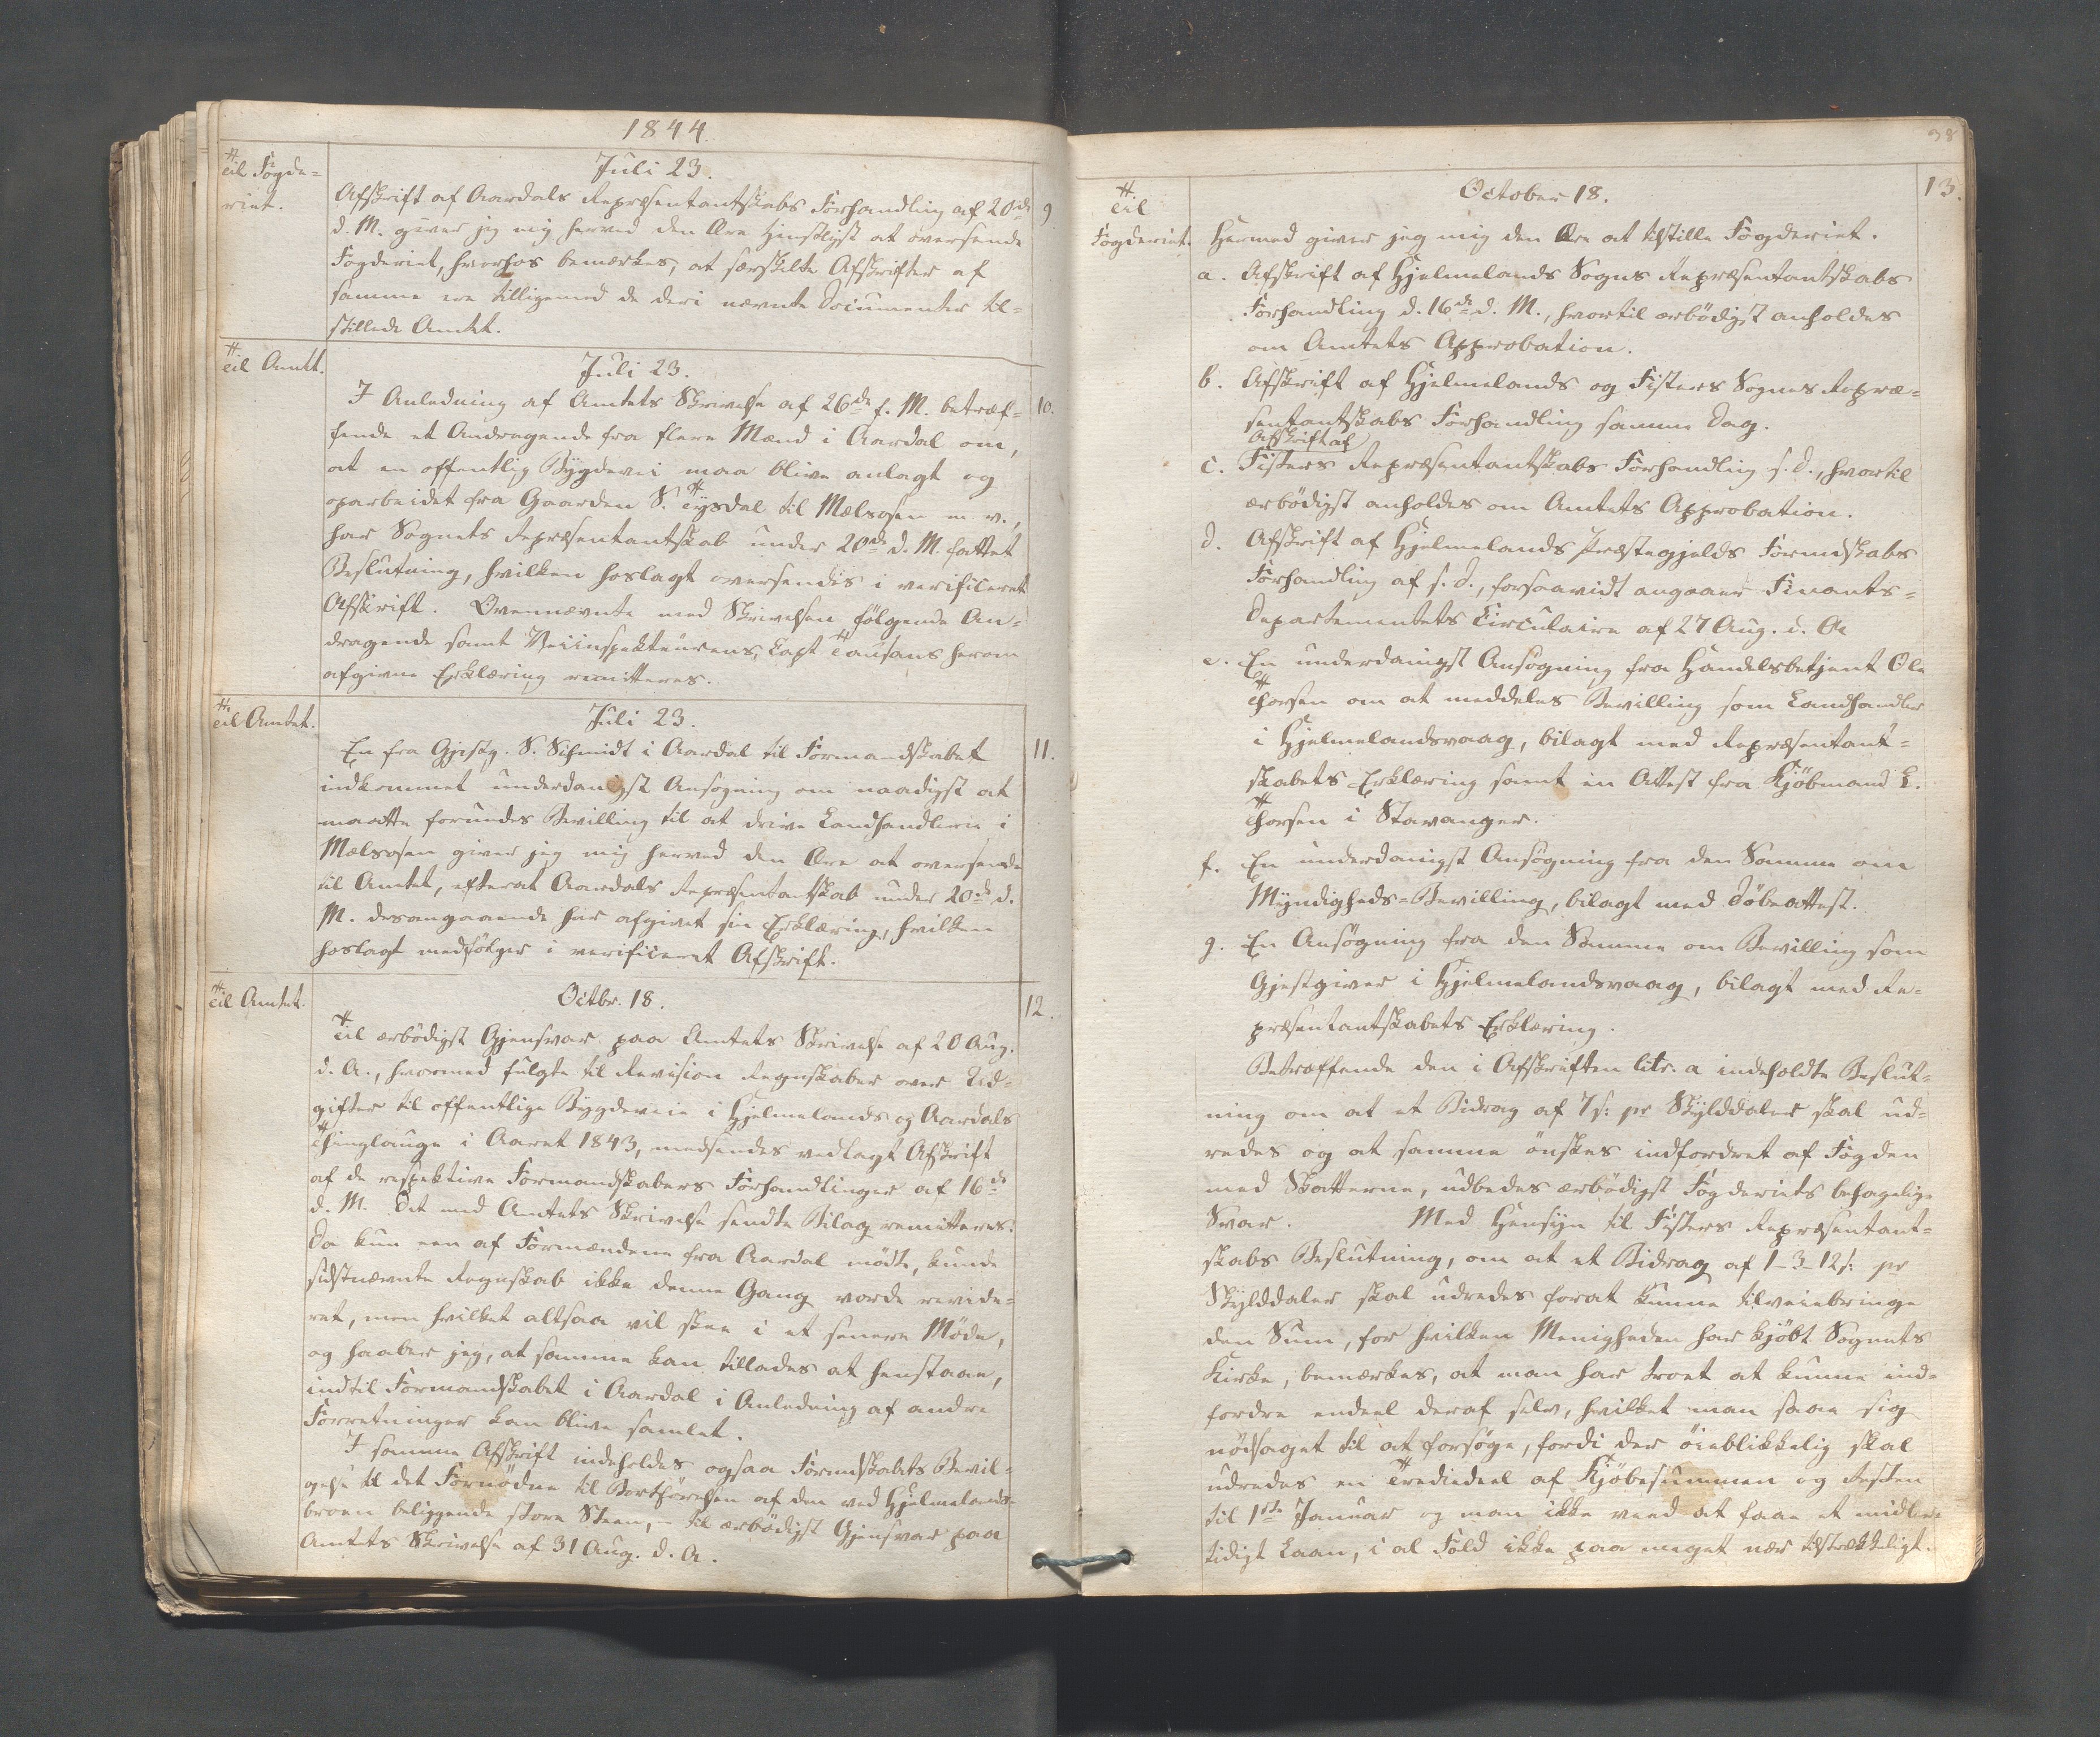 1844.
Til Fogde=
riet.
Juli 23.
9.
Afskrift af Aardals Repræsentantskabs Forhandling af 20de
d. M. giver jeg mig herved den Ære tjenstligst at oversende
Fogderiet, hvorhos bemærkes, at særskilte Afskrifter af
samme ere tilligemed de deri nævnte Documenter til=
stillede Amtet.
Til Amtet.
Juli 23.
10.
I Anledning af Amtets Skrivelse af 26de f. M. betræf=
fende et Andragende fra flere Mænd i Aardal om,
at en offentlig Bygdevei maa blive anlagt og
oparbeidet fra Gaarden S. Tysdal til Mælsosen m. v.,
har Sognets Repræsentantskab under 20de d. M. fattet
Beslutning, hvilken hoslagt oversendes i verificeret
Afskrift. Ovennævnte med Skrivelsen fölgende An=
dragende samt Veiinspekteurens, Capt Tausans herom
afgivne Erklæring remitteres.
Til Amtet.
Juli 23.
11.
En fra Gjestg. S. Schmidt i Aardal til Formandskabet
indkommet underdanigst Ansøgning om naadigst at
maatte forundes Bevilling til at drive Landhandlerie i
Mælsosen giver jeg mig herved den Ære at oversende
til Amtet, efterat Aardals Repræsentantskab under 20de d.
M. desangaaende har afgivet sin Erklæring, hvilken
hoslagt medfölger i verificeret Afskrift.
Til Amtet.
Octbr. 18.
12.
Til ærbödigst Gjensvar paa Amtets Skrivelse af 20 Aug.
d. A., hvormed fulgte til Revision Regnskaber over Ud=
gifter til offentlige Bygdeveie i Hjelmelands og Aardals
Thinglauge i Aaret 1843, medsendes vedlagt Afskrift
af de respektive Formandskabers Forhandlinger af 16de
d. M. Det med Amtets Skrivelse sendte Bilag remitteres.
Da kun een af Formændene fra Aardal mödte, kunde
sidstnævnte Regnskab ikke denne Gang vorde revide=
ret, men hvilket altsaa vil skee i et senere Möde,
og haaber jeg, at samme kan tillades at henstaae,
indtil Formandskabet i Aardal i Anledning af andre
Forretninger kan blive samlet.
I samme Afskrift indeholdes ogsaa Formdskabets Bevil=
gelse til det Fornödne til Bortförelsen af den ved Hjelmelands=
broen beliggende store Steen, - til ærbödigst Gjensvar paa
Amtets Skrivelse af 31 Aug. d. A.
98
Til
Fogderiet.
October 18.
13.
Hermed giver jeg mig den Ære at tilstille Fogderiet.
a. Afskrift af Hjelmelands Sogns Repræsentantskabs
Forhandling d. 16de d. M., hvortil ærbödigst anholdes
om Amtets Approbation.
b. Afskrift af Hjelmelands og Fisters Sognes Repræ=
sentantskabs Forhandling samme Dag.
Afskrift af
c. Fisters Repræsentantskabs Forhandling s. d., hvortil
ærbödigst anholdes om Amtets Approbation.
d. Afskrift af Hjelmelands Præstegjelds Formdskabs
Forhandling af s. d., forsaavidt angaaer Finants=
Departementets Circulaire af 27 Aug. d. A.
e. En underdanigst Ansøgning fra Handelsbetjent Ole
Thorsen om at meddeles Bevilling som Landhandler
i Hjelmelandsvaag, bilagt med Repræsentant=
skabets Erklæring samt en Attest fra Kjöbmand L.
Thorsen i Stavanger.
f. En underdanigst Ansøgning fra den Samme om
Myndigheds=Bevilling, bilagt med Döbeattest.
g. En Ansøgning fra den Samme om Bevilling som
Gjestgiver i Hjelmelandsvaag, bilagt med Re=
præsentantskabets Erklæring.
Betræffende den i Afskriften litr. a indeholdte Beslut=
ning om at et Bidrag af 7 s: pr Skylddaler skal ud=
redes og at samme önskes indfordret af Fogden
med Skatterne, udbedes ærbödigst Fogderiets behagelige
Svar. Med Hensyn til Fisters Repræsentant=
skabs Beslutning, om at et Bidrag af 1-3-12 s: pr
Skylddaler skal udredes forat kunne tilveiebringe
den Sum, for hvilken Menigheden har kjöbt Sognets
Kirke, bemærkes, at man har troet at kunne ind=
fordre endeel deraf selv, hvilket man saae sig
nödsaget til at forsöge, fordi der öieblikkelig skal
udredes en Trediedeel af Kjöbesummen og Resten
til 1ste Januar og man ikke veed at faae et midler=
tidigt Laan, i al Fald ikke paa meget nær tilstrækkeligt.